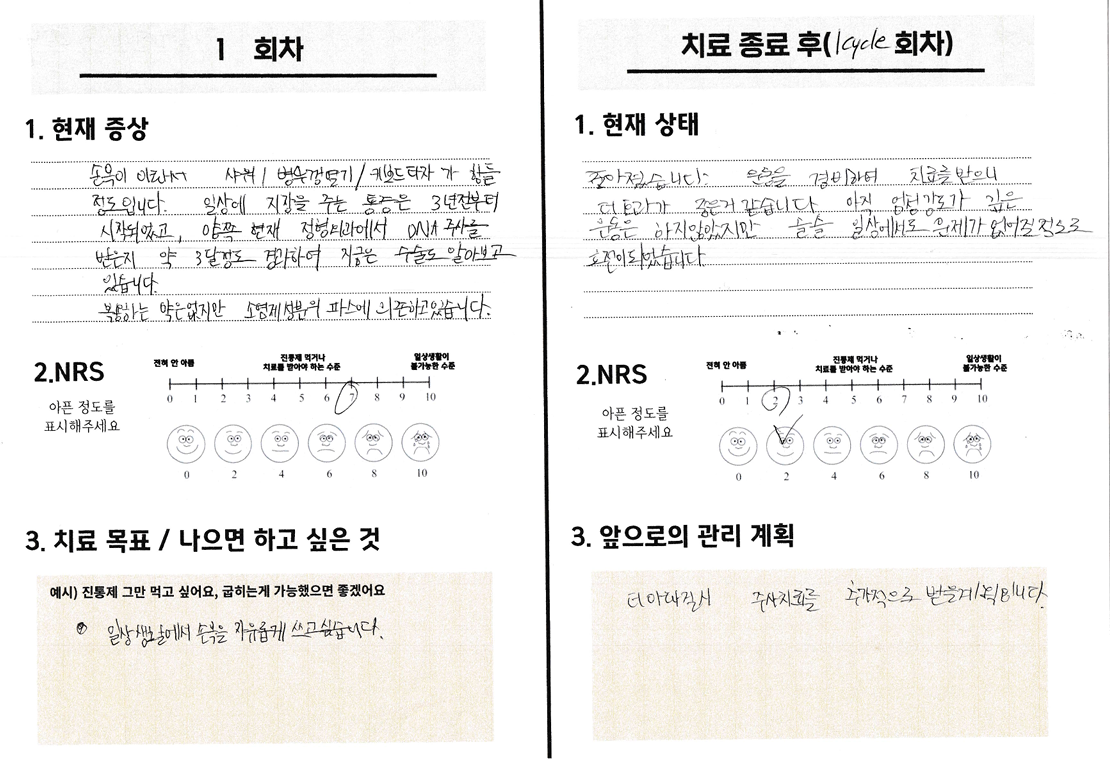 1 회차
1. 현재 증상
손목이 아파서 샤워 / 병뚜껑열기 / 키보드타자 가 힘들
정도입니다. 일상에 지장을 주는 통증은 3년전부터
시작되었고, 양쪽 현재 정형외과에서 DNA 주사를
받은지 약 3달정도 경과하여 지금은 수술도 알아보고
있습니다.
복용하는 약은없지만 소염제성분의 파스에 의존하고있습니다.
2.NRS
아픈 정도를
표시해주세요
전혀 안 아픔
진통제 먹거나
치료를 받아야 하는 수준
일상생활이
불가능한 수준
0 1 2 3 4 5 6 7 8 9 10
0 2 4 6 8 10
3. 치료 목표 / 나으면 하고 싶은 것
예시) 진통제 그만 먹고 싶어요, 굽히는게 가능했으면 좋겠어요
일상생활에서 손목을 자유롭게 쓰고싶습니다.
치료 종료 후(1cycle 회차)
1. 현재 상태
좋아졌습니다. 운동을 겸비하며 치료를 받으니
더 효과가 좋은거 같습니다 아직 엄청강도가 깊은
운동은 하지않았지만 슬슬 일상에서도 문제가 없어질 정도로
호전이되었습니다.
2.NRS
아픈 정도를
표시해주세요
전혀 안 아픔
진통제 먹거나
치료를 받아야 하는 수준
일상생활이
불가능한 수준
0 1 2 3 4 5 6 7 8 9 10
0 2 4 6 8 10
3. 앞으로의 관리 계획
더 아파질시 주사치료를 추가적으로 받을계획입니다.